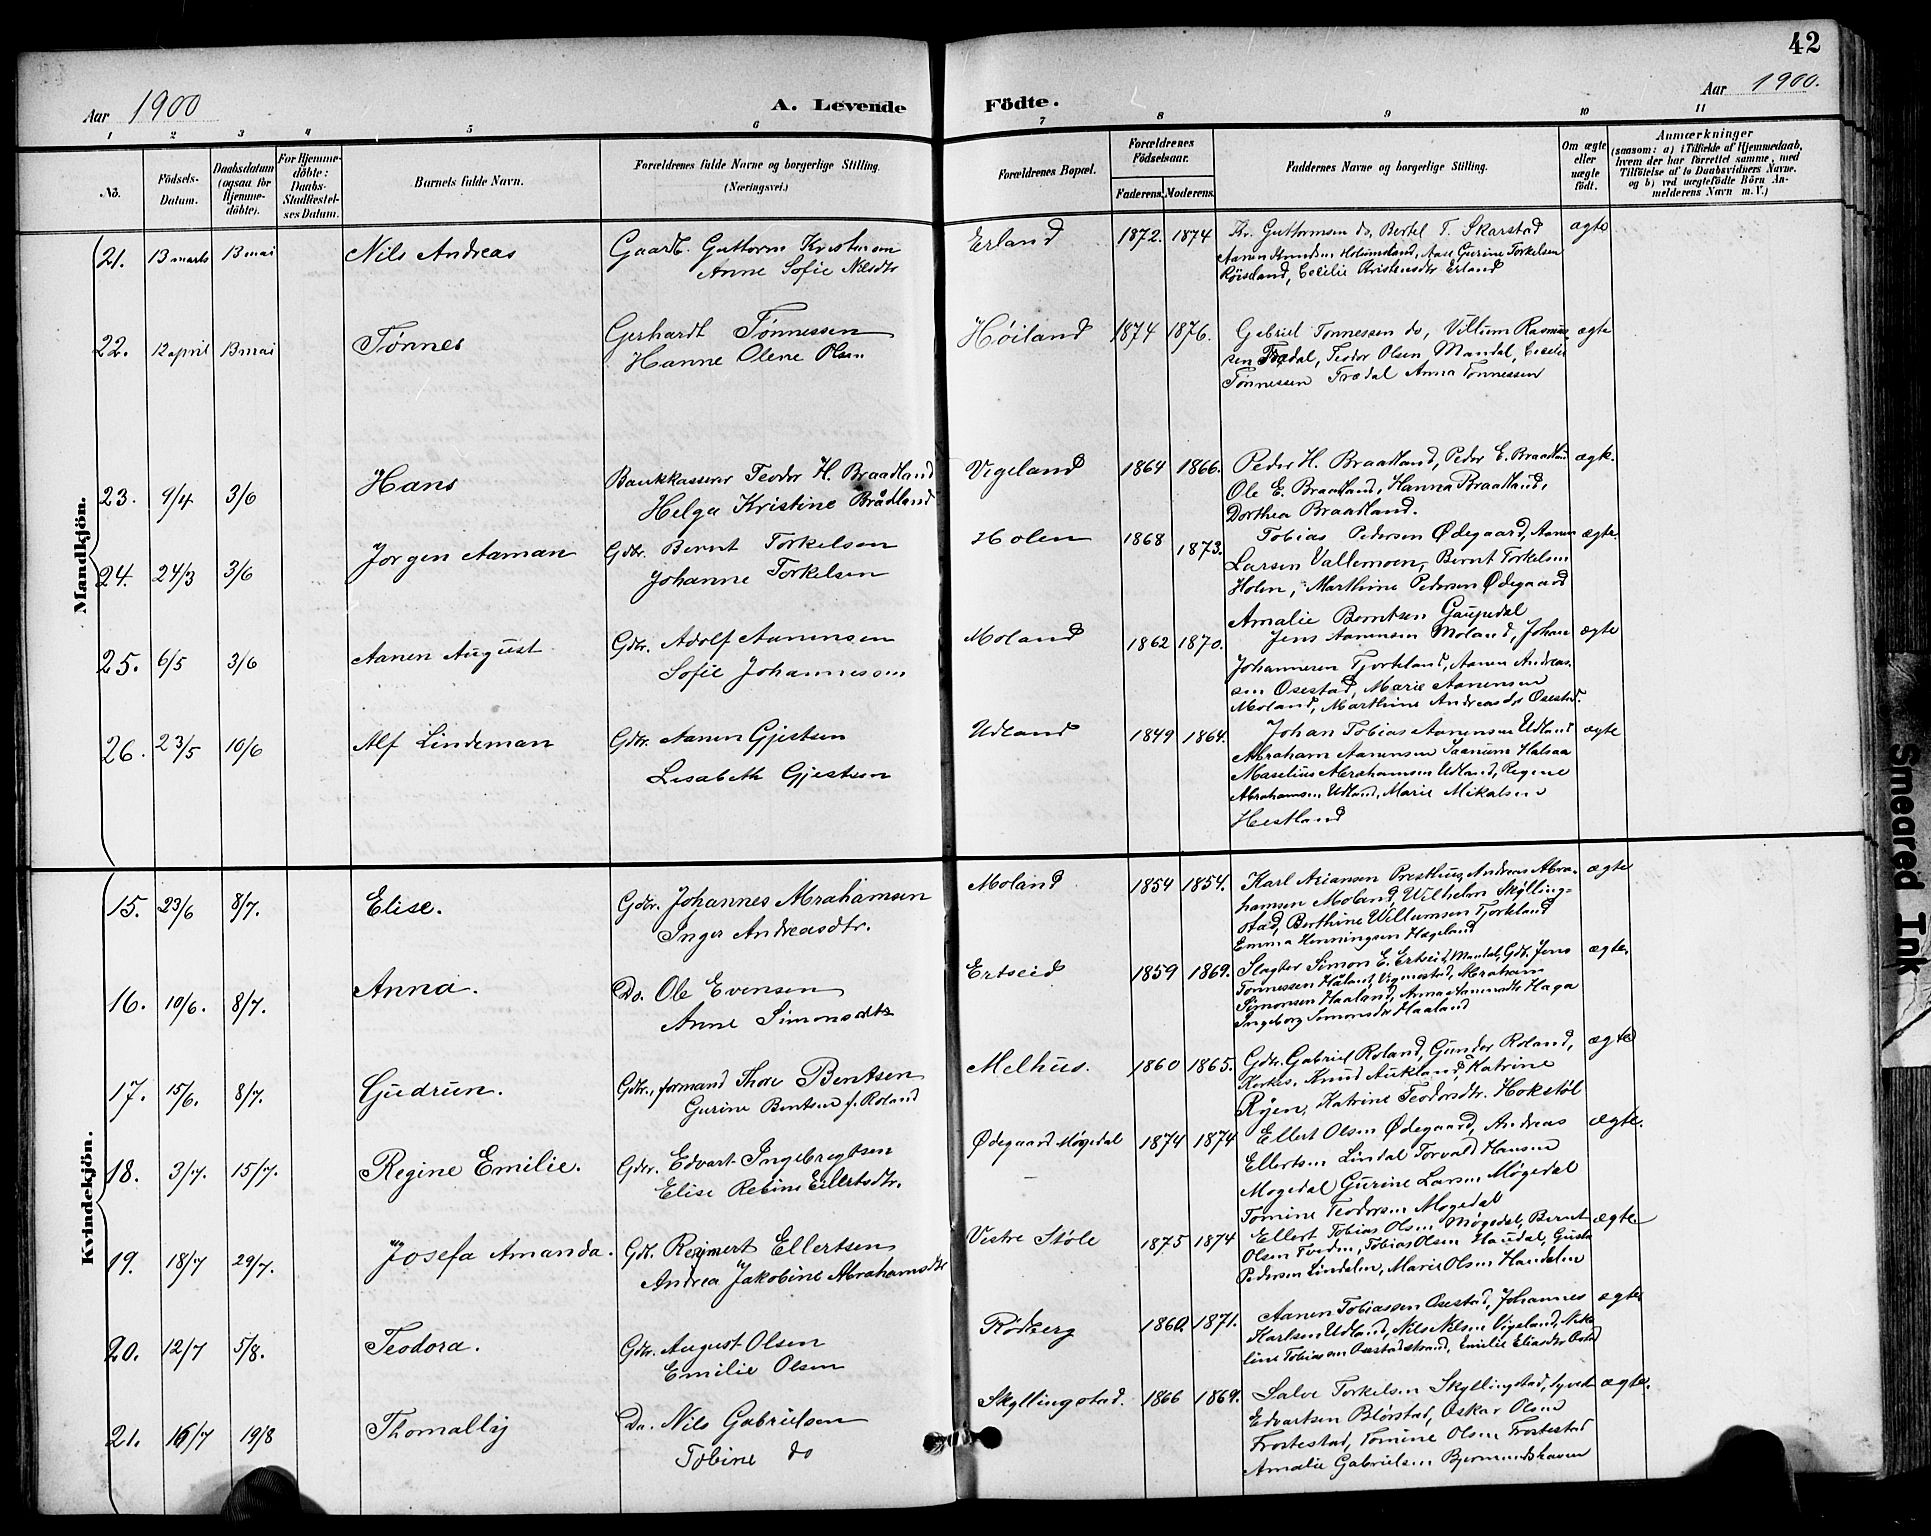 42
Aar 1900
A. Levende Födte.
Aar 1900.
1 2 3 4 5 6 7 8 9 10 11
No.
Födsels-Datum.
Daabsdatum (ogsaa for Hjemmedöbte).
For Hjemmedöbte: Daabs-Stadfæstelses Datum.
Barnets fulde Navn.
Forældrenes fulde Navne og borgerlige Stilling. (Næringsvei.)
Forældrenes Bopæl.
Forældrenes Födselsaar.
Faderens. Moderens.
Faddernes Navne og borgerlige Stilling.
Om ægte eller uægte födt.
Anmærkninger
(saasom: a) i Tilfælde af Hjemmedaab,
hvem der har forrettet samme, med
Tilföielse af to Daabsvidners Navne.
og b) ved uægtefödte Börn An-
melderens Navn m. V.)
Mandkjön.
21. 13 marts 13 mai Nils Andreas Gaardb. Guttorm Kristensen
Anne Sofie Nilsdtr
Erland 1872. 1874 Kr. Guttormsen do, Bertel T. Skarstad ægte
Aanen Knudsen Holumsland, Aase Gurine Torkelsen
Röisland, Cecilie Kristensdtr Erland
22. 12 april 13 mai Tønnes Gerhardt Tønnessen
Hanne Olene Olsen
Høiland 1874 1876. Gabriel Tønnessen do, Villum Rasmus- ægte
sen Trædal, Teodor Olsen, Mandal, Cecilie
Tønnessen Trædal Anna Tønnessen
23. 9/4 3/6 Hans Bankkasserer Teodor H. Braadland
Helga Kristine Brådland
Vigeland 1864 1866. Peder H. Braadland, Peder E. Braadland ægte.
Ole E. Braadland, Hanna Braadland,
Dorthea Braadland.
24. 24/3 3/6 Jørgen Aaman Gdbr. Bernt Torkelsen
Johanne Torkelsen
Holen 1868 1873. Tobias Pedersen Ødegaard, Aanen ægte.
Larsen Vallemoen, Bernt Torkelsen
Holen, Marthine Pedersen Ødegaard
Amalie Berntsen Gaupedal
25. 6/5 3/6 Aanen August Gdbr. Adolf Aanensen
Sofie Johannessen
Moland 1862 1870. Jens Aanensen Moland, Johan ægte
Johannesen Tjorteland, Aanen Andreas-
sen Osestad, Marie Aanensen
Moland, Marthine Andreasdtr Osestad.
26. 23/5 10/6 Alf Lindeman Gdbr. Aanen Gjertsen
Lisabeth Gjertsen
Udland 1849 1864. Johan Tobias Aanensen Udland ægte
Abraham Aanensen Saanum Halsaa
Maselius Abrahamsen Udland, Regine
Abrahamsen Udland, Marie Mikalsen
Hestland
Kvindekjön.
15. 23/6 8/7. Elise. Gdbr. Johannes Abrahamsen
Inger Andreasdtr.
Moland 1854 1854. Karl Ariansen Presthus, Andreas Abra- ægte
hamsen Moland, Wilhelm Skylling-
stad, Berthine Willumsen Tjorteland
Emma Henningsen Hageland
16. 10/6. 8/7. Anna. Do. Ole Evensen
Anne Simonsdtr
Ertseid 1859 1869. Slagter Simon E. Ertseid, Mandal, Gdbr. Jens ægte,
Tønnessen Håland, Vigmostad, Abraham
Simonsen Haaland, Anna Aanensdtr Haga
Ingeborg Simonsdtr Haaland
17. 15/6. 8/7. Gudrun. Gdbr., formand Thore Bentsen
Gurine Bentsen f. Roland
Melhus. 1860 1865. Gdbr. Gabriel Roland, Gunder Roland, ægte
Kirkes. Knud Aukland, Katrine
Röyen, Katrine Teodorsdtr. Hokstöl
18. 3/7. 15/7. Regine Emilie. Gdbr. Edvart Ingebregtsen
Elise Regine Ellertsdtr.
Ødegaard Møgedal 1874 1874 Ellert Olsen Ødegaard, Andreas ægte.
Ellertsen Lindal Torvald Hansen
Mogedal Gurine Larsen Møgedal
Tomine Teodorsen Mogedal
19. 18/7 29/7. Josefa Amanda. Gdb. Regmert Ellertsen
Andrea Jakobine Abrahamsdtr
Vestre Støle 1875 1874 Ellert Tobias Olsen Møgedal, Bernt ægte
Olsen Tveden, Tobias Olsen Haudal, Gusta
Pedersen Lindalen, Marie Olsen Haudalen
20. 12/7 5/8. Teodora. Gdbr. August Olsen
Emilie Olsen
Rödberg 1860. 1871. Aanen Tobiassen Osestad, Johannes ægte
Karlsen Udland, Nils Nilsen Vigeland, Niko-
line Tobiassen Osestadstrand, Emilie Eliasdtr Ostad
21. 16/7 19/8 Thomally Do. Nils Gabrielsen
Tobine do
Skyllingstad. 1866 1869. Salve Torkelsen Skyllingstad, Syvert ægte.
Edvartsen Blørstad, Oskar Olsen
Frostestad, Tomine Olsen Frostestad
Amalie Gabrielsen Bjermundshavn
Smeared Ink